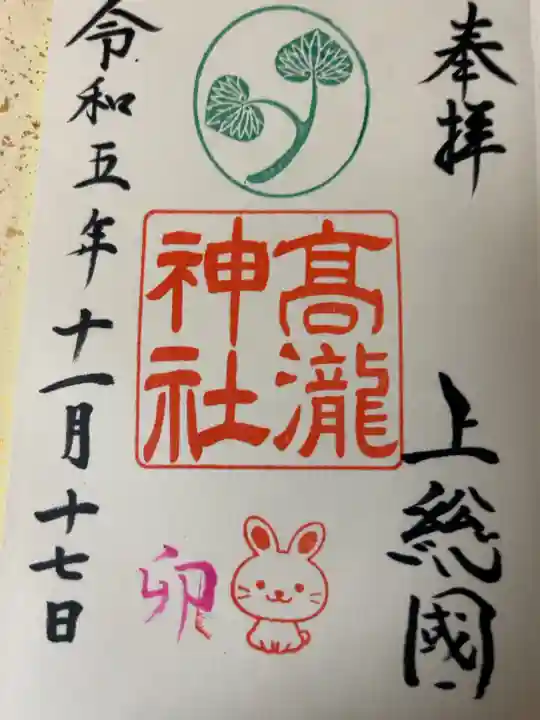 奉拝
上総國
髙瀧
神社
卯
令和五年十一月十七日